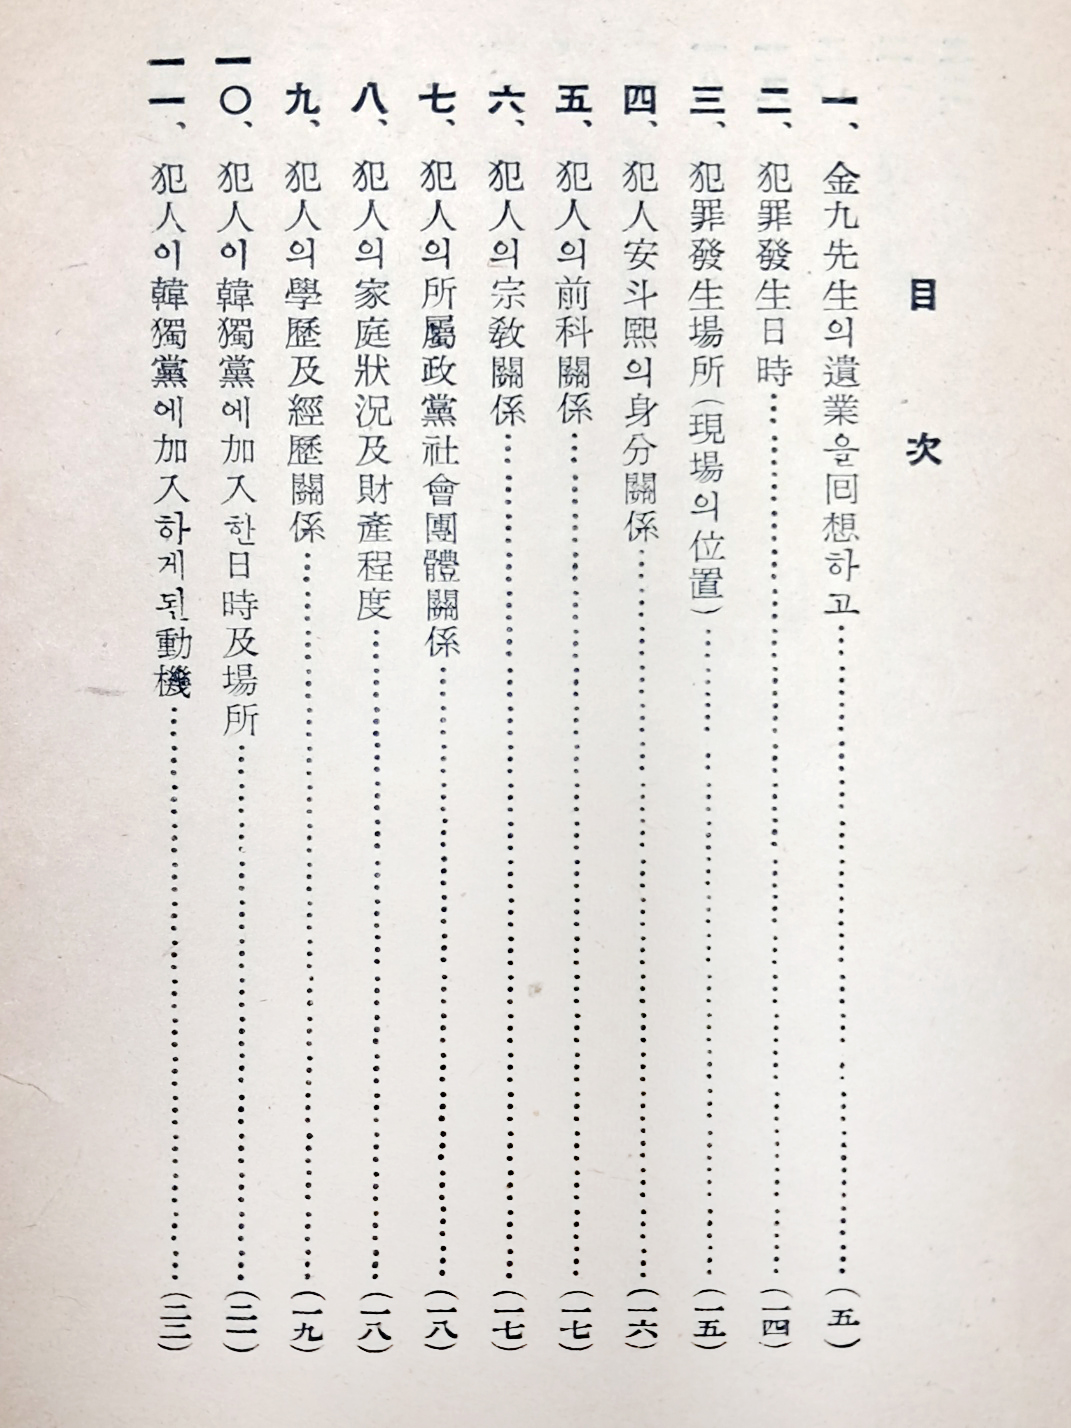 目 次
一、金九先生의遺業을回想하고……………(五)
二、犯罪發生日時……………(一四)
三、犯罪發生場所(現場의位置)……………(一五)
四、犯人安斗熙의身分關係……………(一六)
五、犯人의前科關係……………(一七)
六、犯人의宗敎關係……………(一七)
七、犯人의所屬政黨社會團體關係……………(一八)
八、犯人의家庭狀況及財產程度……………(一八)
九、犯人의學歷及經歷關係……………(一九)
一〇、犯人이韓獨黨에加入한日時及場所……………(二一)
一一、犯人이韓獨黨에加入하게된動機……………(二二)